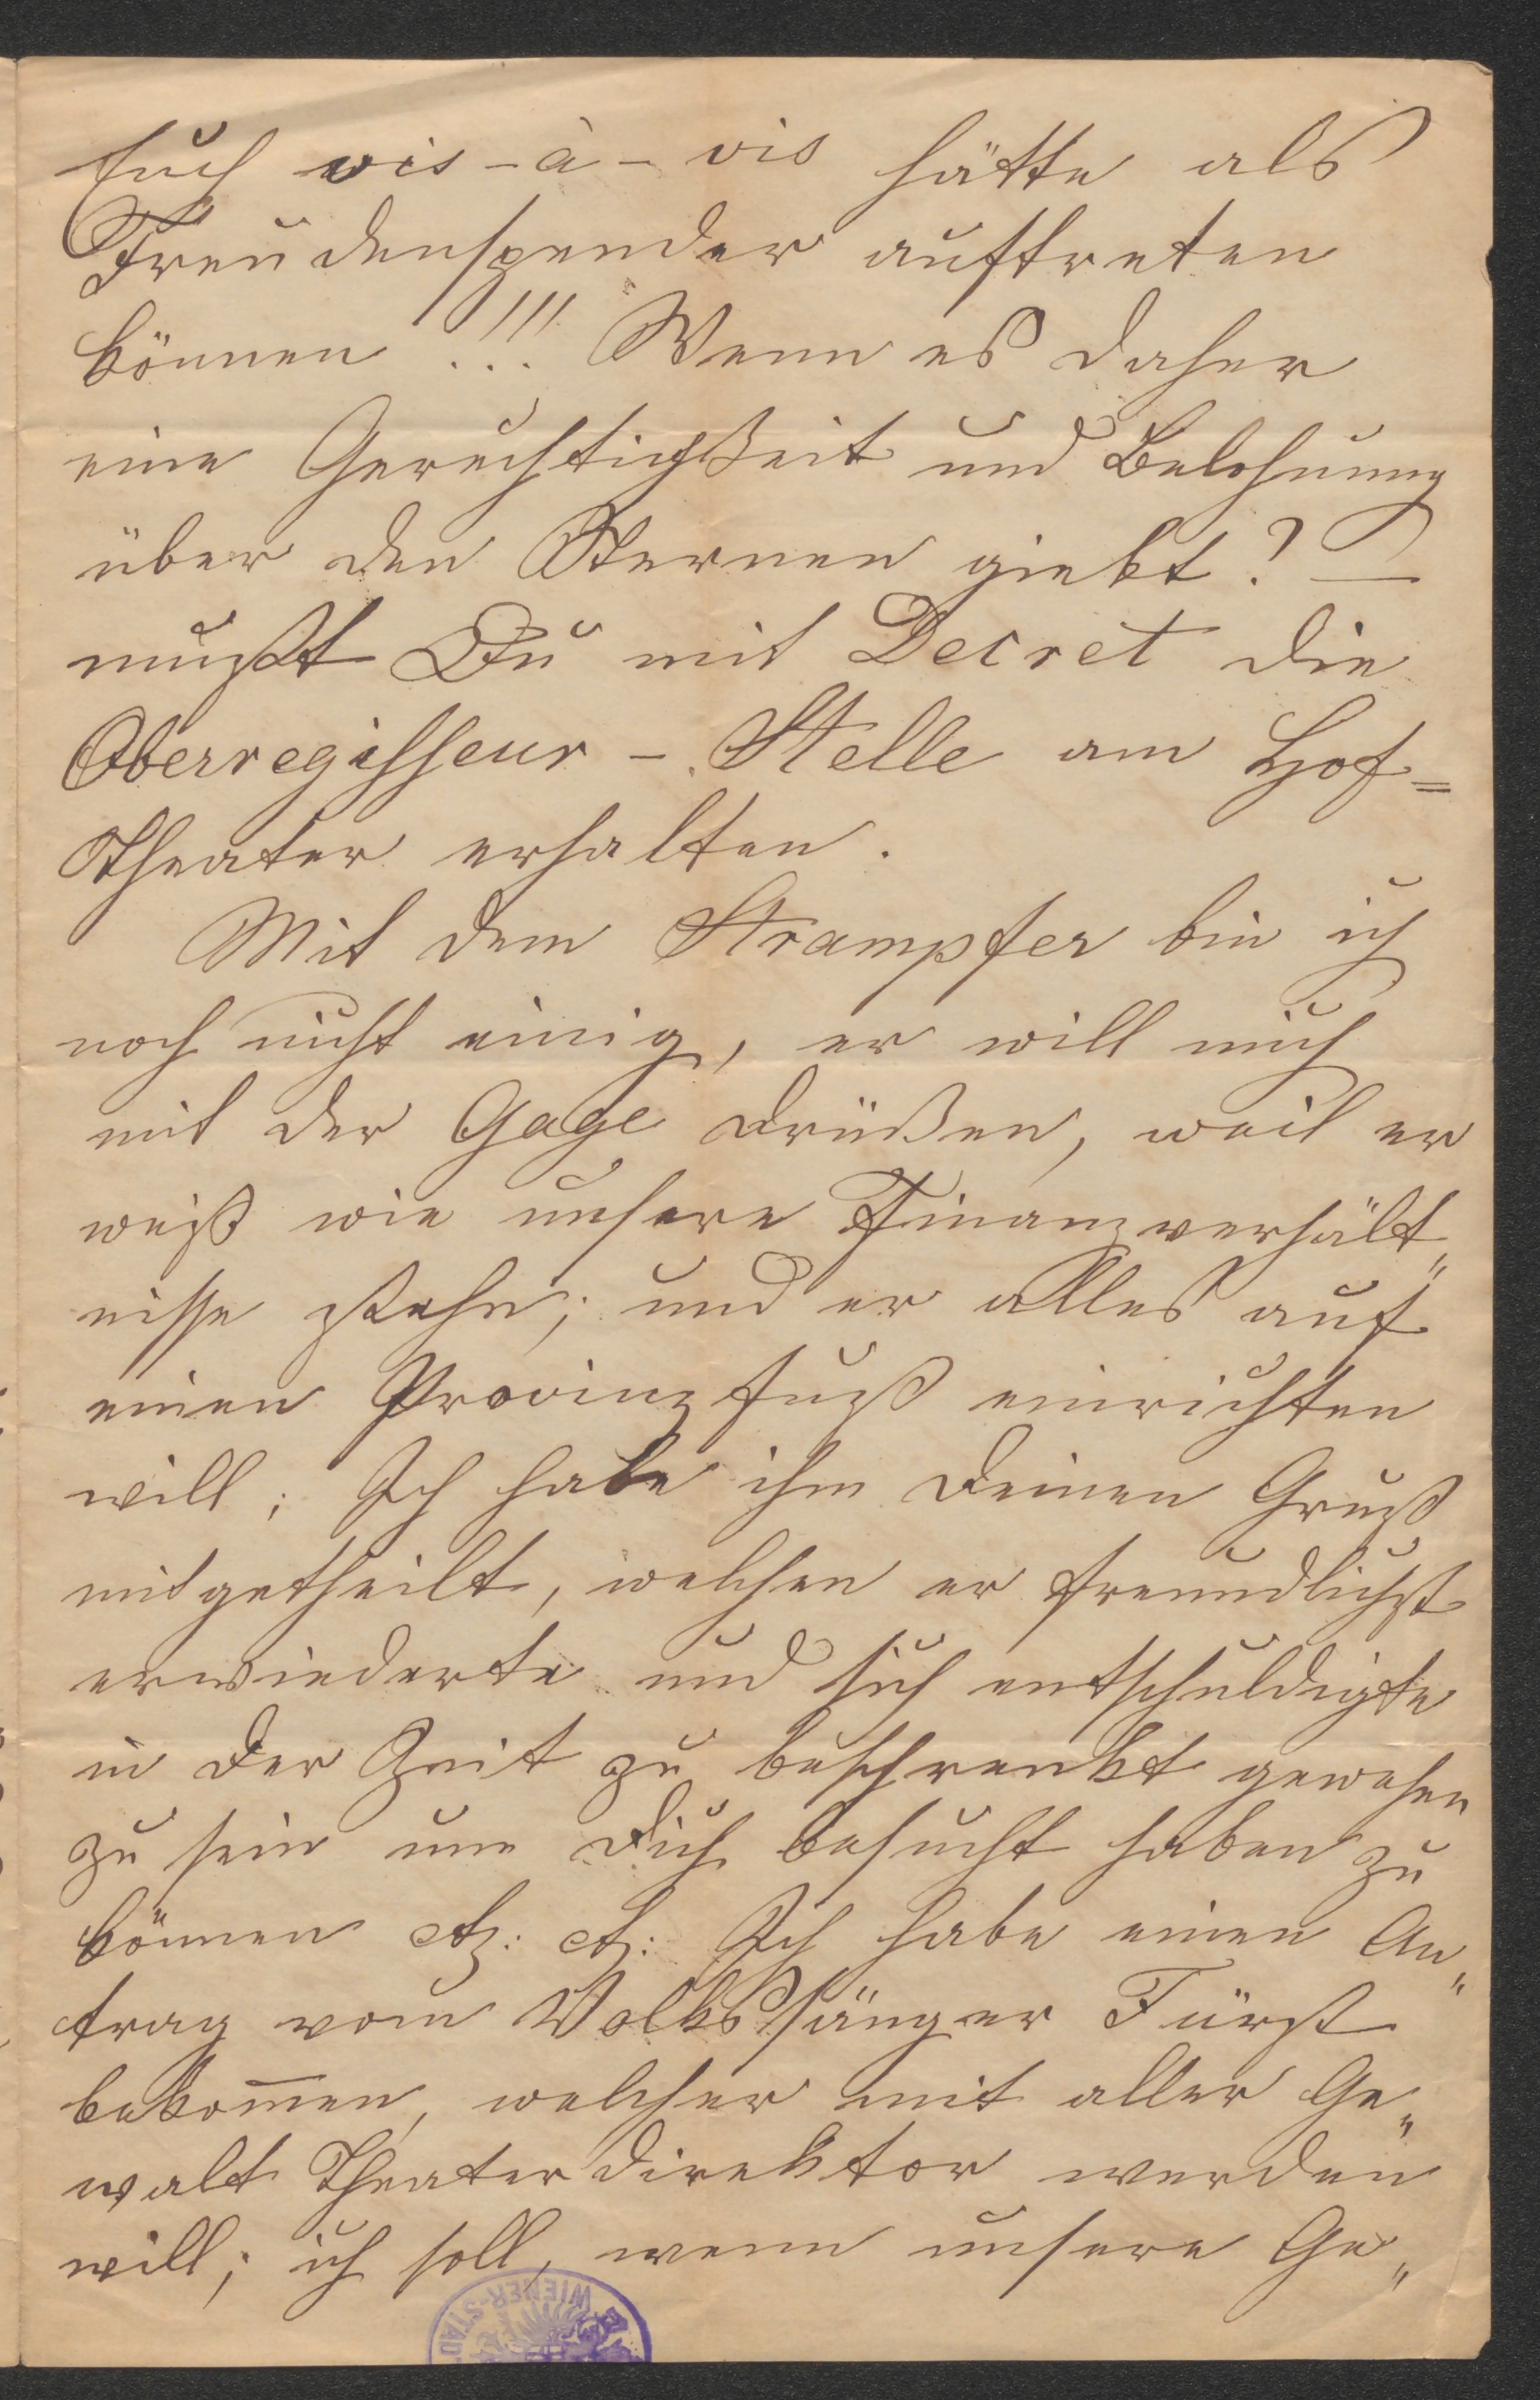 Euch vis-à-vis hätte als
Freudenspender auftreten
können!!! Wenn es daher
eine Gerechtigkeit und Belohnung
über den Sternen giebt? —
mußt Du mit Decret die
Oberregisseur-Stelle am Hof=
theater erhalten.
Mit dem Strampfer bin ich
noch nicht einig, er will mich
mit der Gage drücken, weil er
weiß wie unsere Finanzverhält„
nisse stehn; und er alles auf
einen Provinzfuß einrichten
will; Ich habe ihm Deinen Gruß
mitgetheilt, welchen er freundlichst
erwiederte und sich entschuldigte
in der Zeit zu beschrenkt gewesen
zu sein um Dich besucht haben zu
können etz: etz: Ich habe einen An„
trag vom Volkssänger Fürst
bekom̅en, welcher mit aller Ge„
walt Theaterdirektor werden
will; ich soll, wenn unsere Ge„
WIENER-STAD